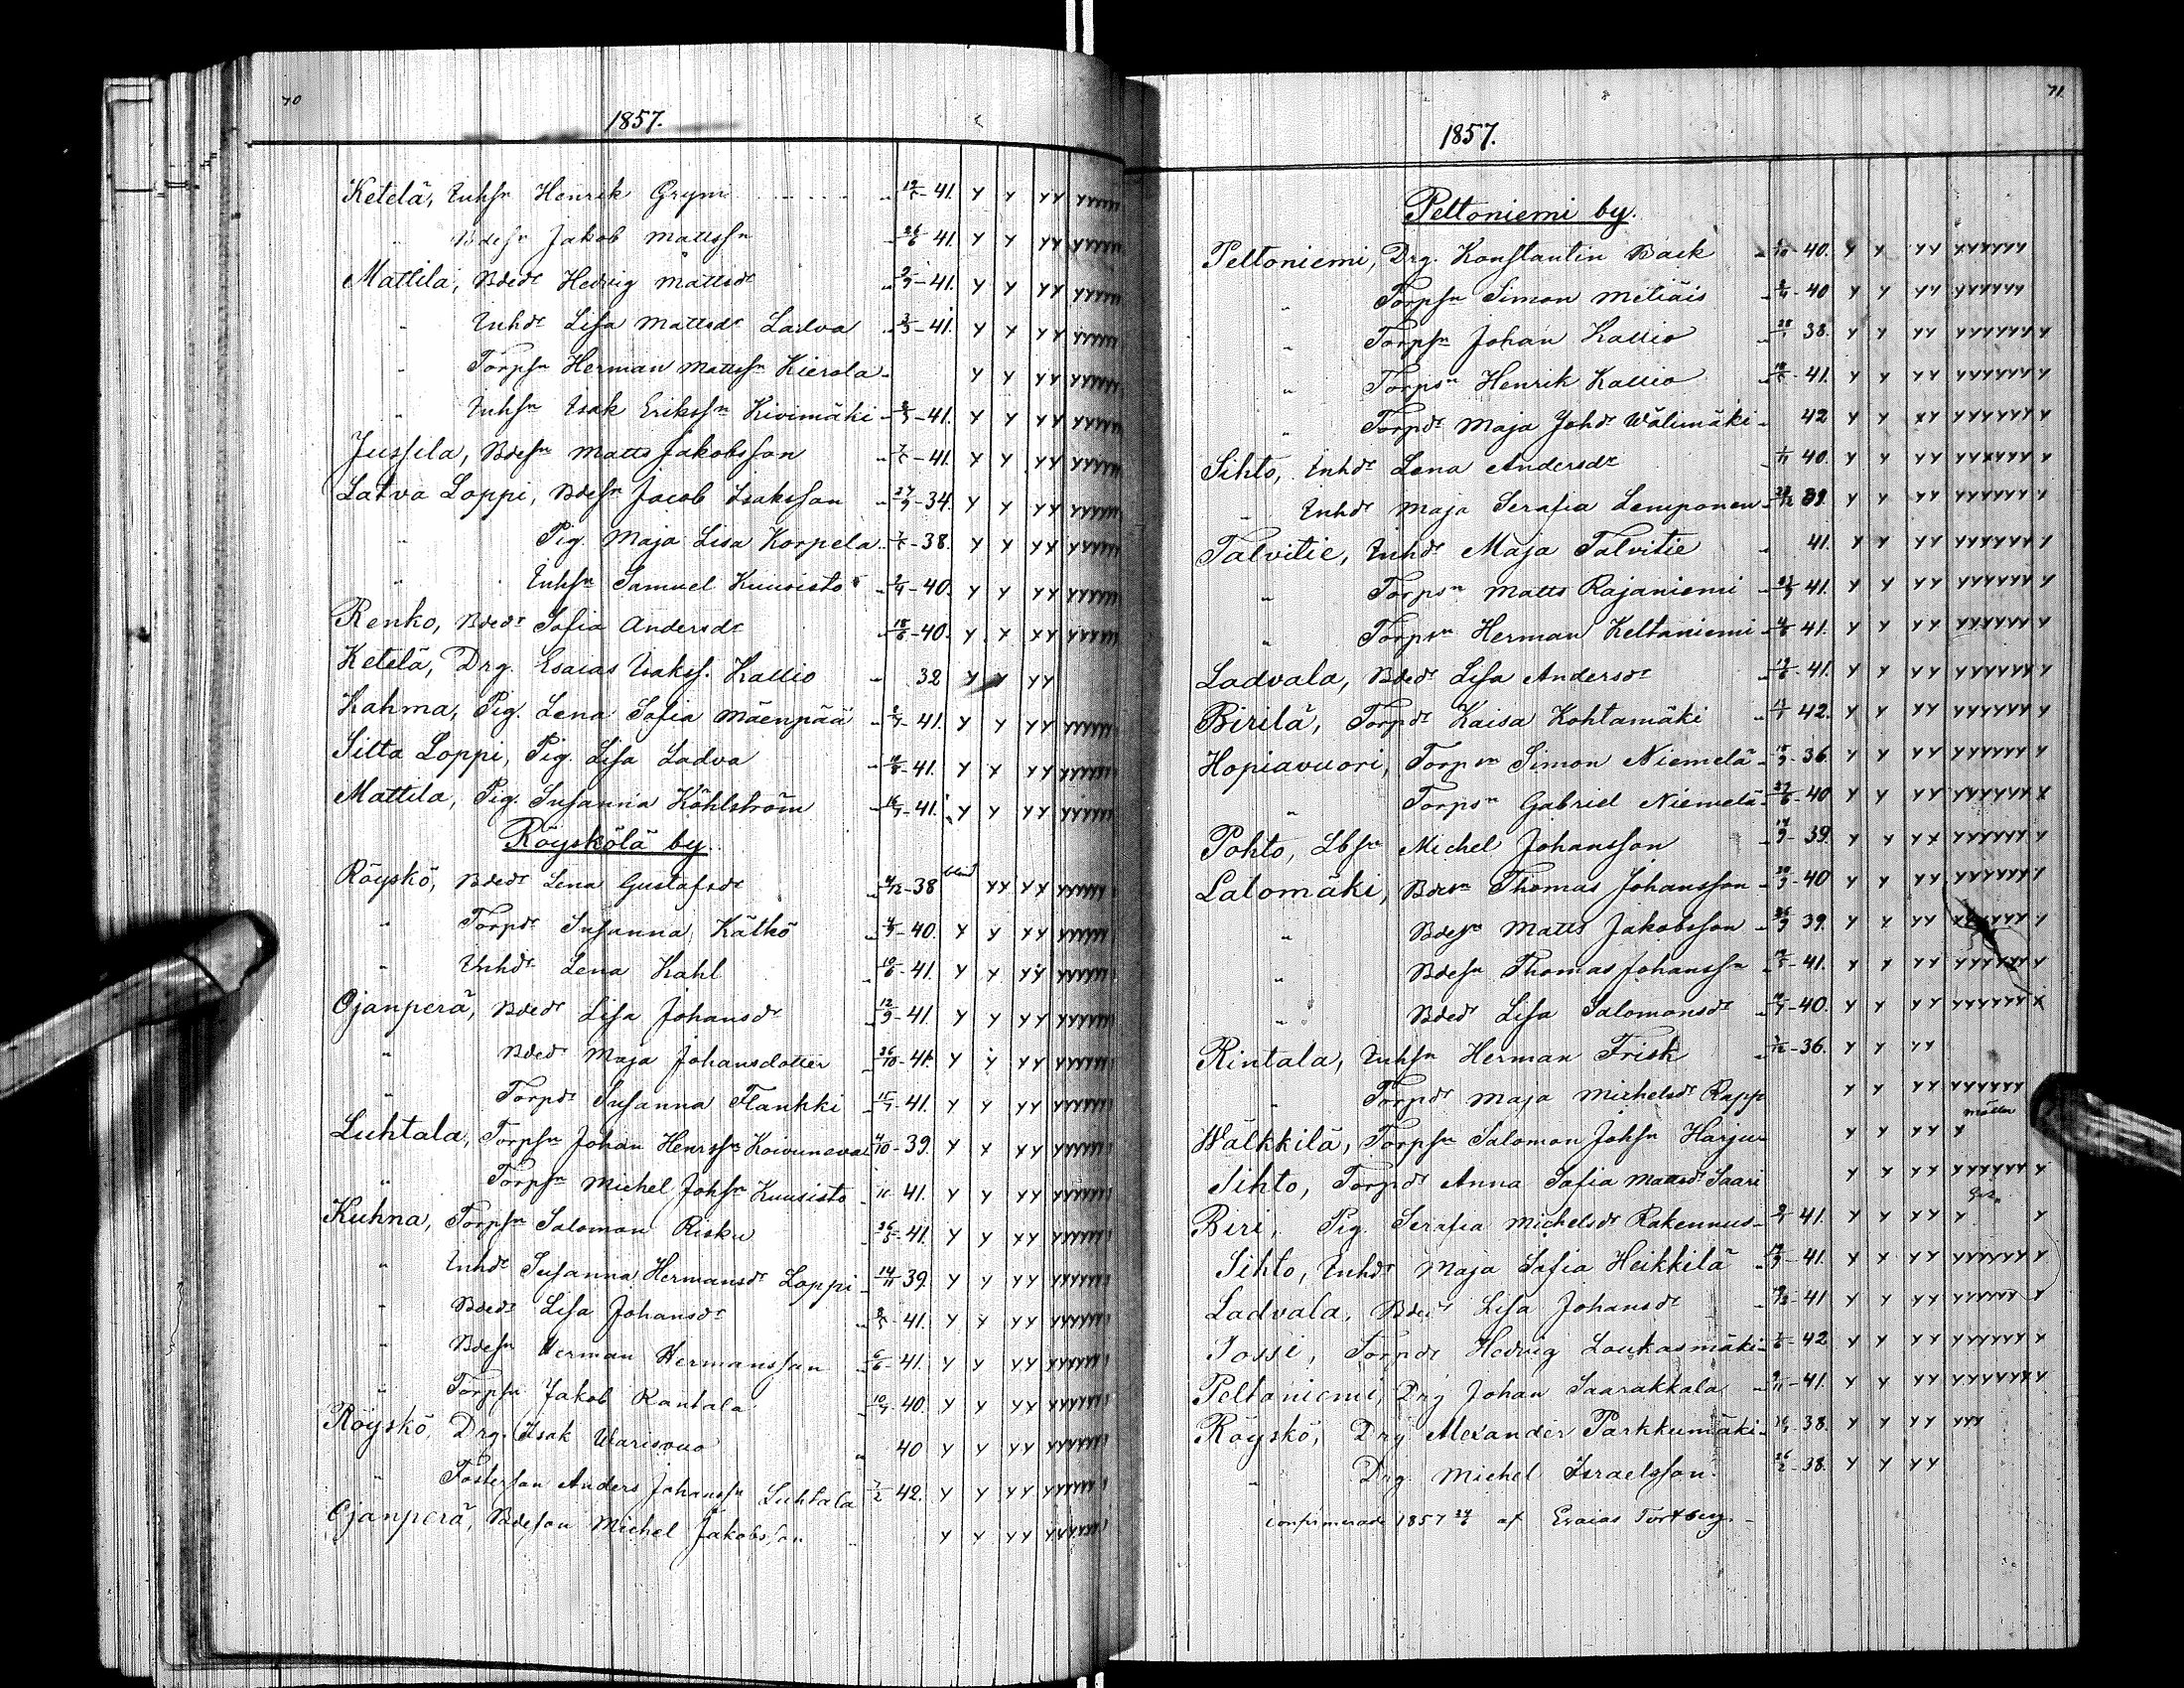 70
1857.
Ketelä, Inhsn Henrik Grym 19/5-41. Y Y YY YYYYYY
" Bdesn Jakob Mattssn " 26/6 41. Y Y YY YYYYYY
Mattila, Bdedr Hedvig Mattsdr " 2/9-41. Y Y YY YYYYYY
" Inhdr Lisa Mattsdr Ladva " 3/3-41. Y Y YY YYYYYY
" Torpsn Herman Mattssn Kierola Y Y YY YYYYYY
" Inhsn Isak Erikssn Kivimäki -41. Y Y YY YYYYYY
Jussila, Bdesn Matts Jakobsson " -41. Y Y YY YYYYYY
Latva Loppi, Bdesn Jacob Isaksson " 27/9-34. Y Y YY YYYYYY
" Pig. Maja Lisa Korpela -38. Y Y YY YYYYYY
" Inhsn Samuel Kuusisto -40. Y Y YY YYYYYY
Renko, Bdedr Sofia Andersdr " 18/6-40. Y Y YY YYYYYY
Ketelä, Drg. Esaias Isakss. Kallio " 32 Y Y YY
Kahma, Pig. Lena Sofia Mäenpää -41. Y Y YY YYYYYY
Sitta Loppi, Pig. Lisa Ladva -41. Y Y YY YYYYYY
Mattila, Pig. Susanna Kohlström -41. Y Y YY YYYYYY
Röyskölä by.
Röyskö, Bdedr Lena Gustafsdr 4/12-38 blind YY YY YYYYYY
" Torpdr Susanna Kätkö -40. Y Y YY YYYYYY
" Inhdr Lena Kahl " 10/6-41. Y Y YY YYYYYY
Ojanperä, Bdedr Lisa Johansdr " 12/9-41. Y Y YY YYYYYY
" Bdedr Maja Johansdotter 26/10-41. Y Y YY YYYYYY
" Torpdr Susanna Flankki -41. Y Y YY YYYYYY
Luhtala, Torpsn Johan Henrssn Koivuneva 4/10-39. Y Y YY YYYYYY
" Torpsn Michel Johsn Kuusisto 41. Y Y YY YYYYYY
Kuhna, Torpsn Salomon Risku -41. Y Y YY YYYYYY
" Inhdr Susanna Hermansdr Loppi 14/11 39. Y Y YY YYYYYY
" Bdedr Lisa Johansdr -41. Y Y YY YYYYYY
" Bdesn Herman Hermansson 6/6-41. Y Y YY YYYYYY
" Torpsn Jakob Rantala 40. Y Y YY YYYYYY
Röyskö, Drg. Isak Warisvuo " 40 Y Y YY YYYYYY
" Fosterson Anders Johanssn Luhtala 7/2 42. Y Y YY YYYYYY
Ojanperä, Bdeson Michel Jakobsson Y Y YY YYYYYY
71.
1857.
Peltoniemi by.
Peltoniemi, Drg. Konstantin Back -40. Y Y YY YYYYYY
" Torpsn Simon Metiäis -40 Y Y YY YYYYYY
" Torpsn Johan Kallio 38. Y Y YY YYYYYY Y
" Torpsn Henrik Kallio -41. Y Y YY YYYYYY Y
" Torpdr Maja Johdr Wälimäki 42 Y Y YY YYYYYY Y
Sihto, Inhdr Lena Andersdr 40. Y Y YY YYYYYY Y
" Inhdr Maja Serafia Lemponen 39. Y Y YY YYYYYY Y
Talvitie, Inhdr Maja Talvitie 41. Y Y YY YYYYYY Y
" Torpsn Matts Rajaniemi 41. Y Y YY YYYYYY Y
" Torpsn Herman Keltaniemi 41. Y Y YY YYYYYY Y
Ladvala, Bdedr Lisa Andersdr " 19/6-41. Y Y YY YYYYYY Y
Birilä, Torpdr Kaisa Kohtamäki 42. Y Y YY YYYYYY Y
Hopiavuori, Torpsn Simon Niemelä -36. Y Y YY YYYYYY Y
" Torpsn Gabriel Niemelä 27/6-40 Y Y YY YYYYYY Y
Pohto, Lbsn Michel Johansson 14/9-39. Y Y YY YYYYYY Y
Latomäki, Bdesn Thomas Johansson -40 Y Y YY YYYYYY Y
" Bdesn Matts Jakobsson 39. Y Y YY YYYYYY Y
" Bdesn Thomas Johanssn -41. Y Y YY YYYYYY Y
" Bdedr Lisa Salomonsdr -40. Y Y YY YYYYYY Y
Rintala, Inhsn Herman Frisk -36. Y Y YY
" Torpdr Maja Michelsdr Rapp Y Y YY YYYYYY
Wälkkilä, Torpsn Salomon Johsn Harju Y Y YY Y
Sihto, Torpdr Anna Sofia Mattsdr Saari Y Y YY YYYYYY Y
Biri, Pig. Serafia Michelsdr Rakennus -41. Y Y YY Y Y
Sihto, Inhdr Maja Sofia Heikkilä -41. Y Y YY YYYYYY Y
Ladvala, Bdedr Lisa Johansdr -41 Y Y YY YYYYYY Y
Jossi, Torpdr Hedvig Loukasmäki -42 Y Y YY YYYYYY Y
Peltoniemi, Drg Johan Saarakkala -41. Y Y YY YYYYYY Y
Röyskö, Drg Alexander Parkkumäki -38. Y Y YY YYY
" Drg. Michel Israelsson. 26/2-38. Y Y YY
confirmerade 1857 af Esaias Tortberg.